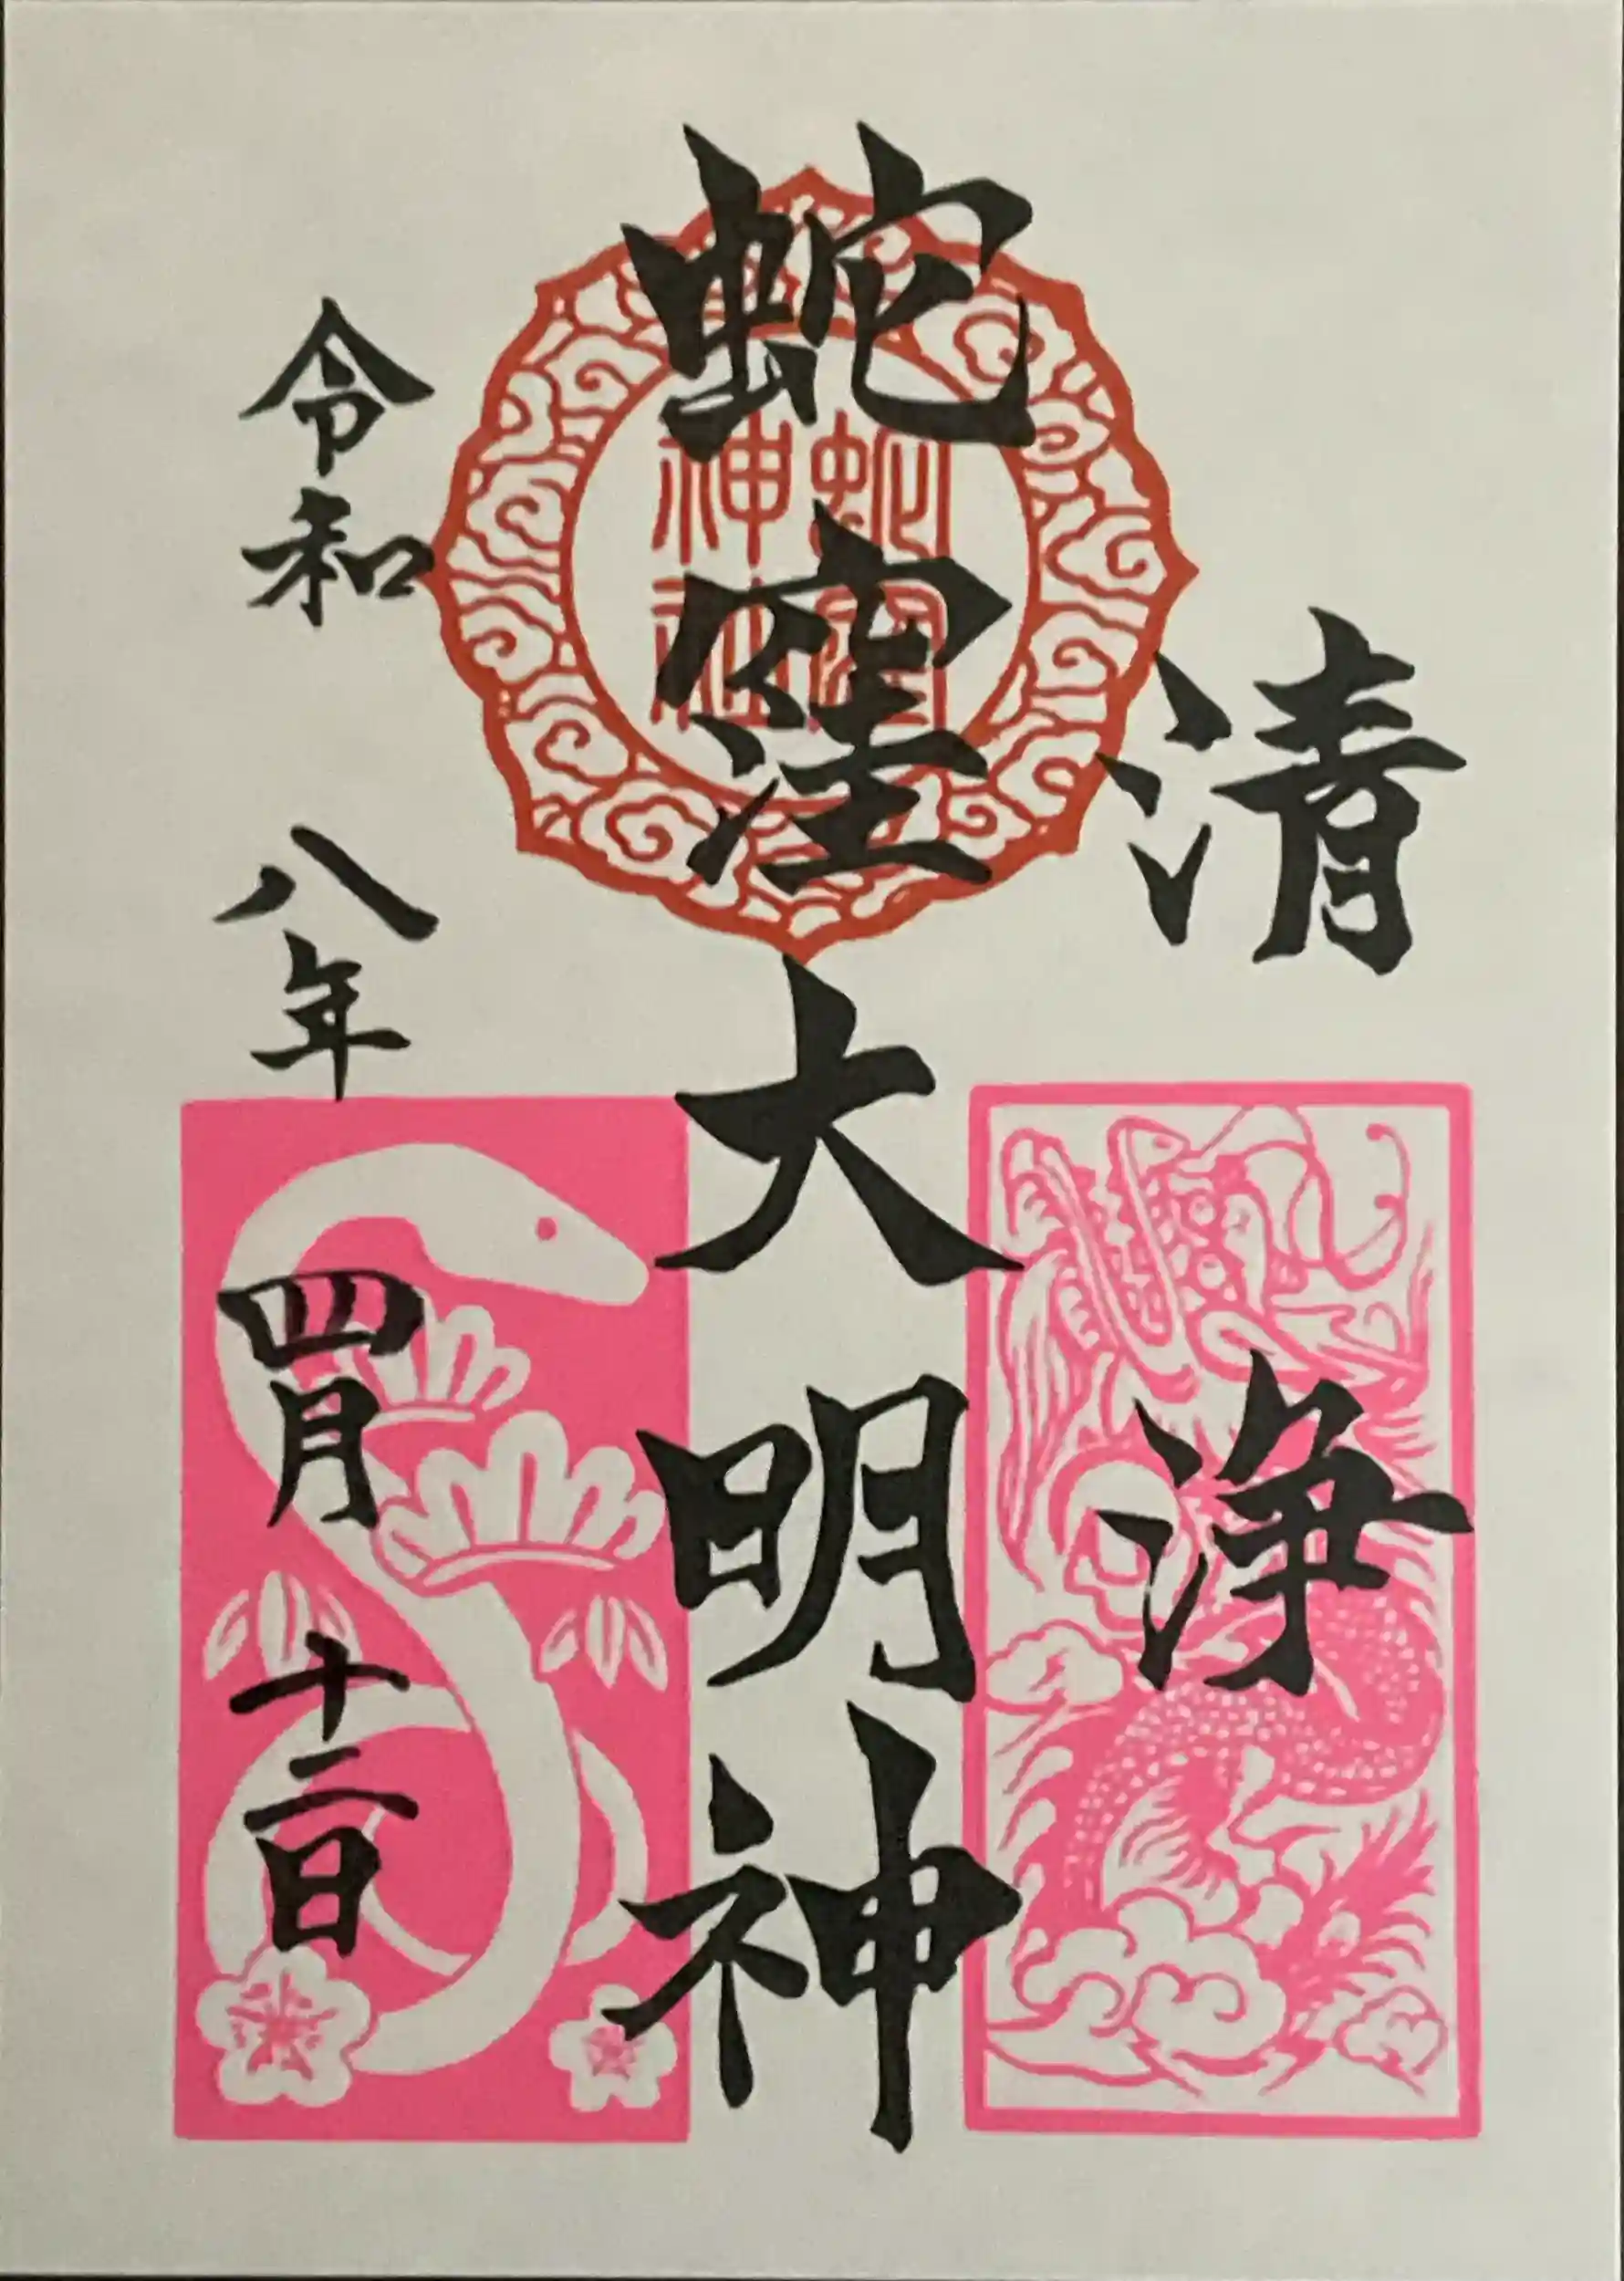 清浄
蛇窪大明神
蛇窪
神社
令和八年四月十二日